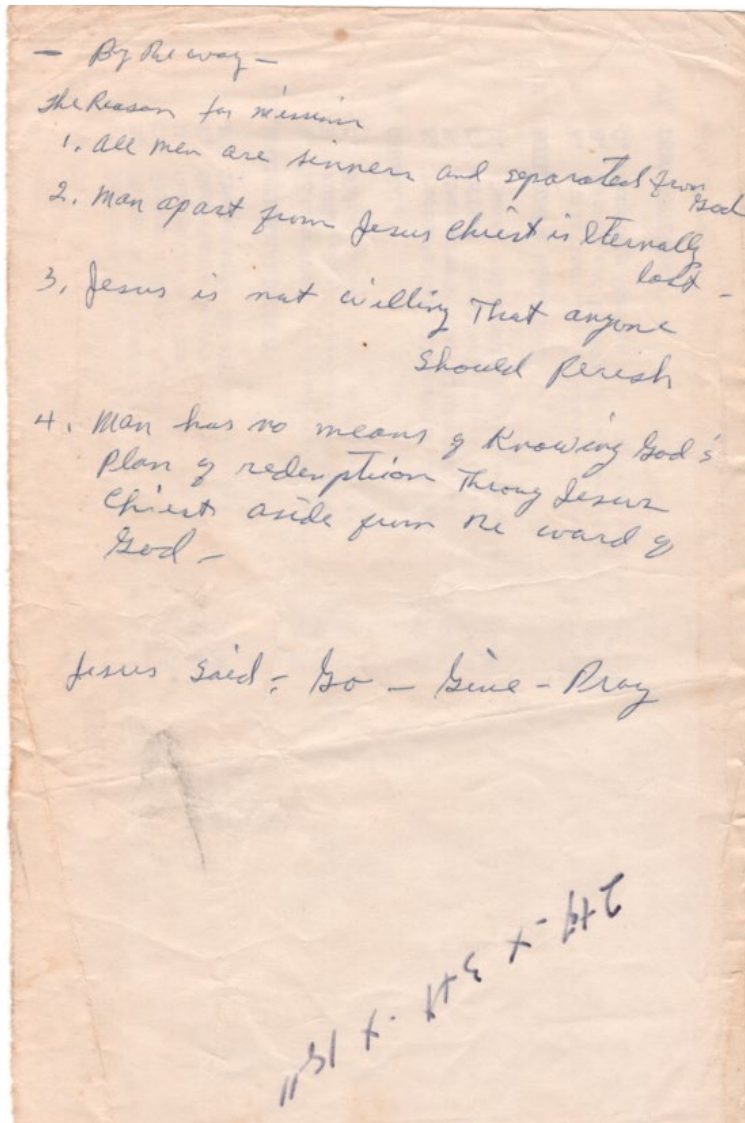 - By the way -
The Reason for mission
1. All men are sinners and separated from God
2. Man apart from Jesus Christ is Eternally
lost -
3. Jesus is not willing That anyone
should Perish
4. Man has no means of Knowing God's
Plan of redemption Throug Jesus
Christ aside from the word of
God -
Jesus Said - Go - Give - Pray